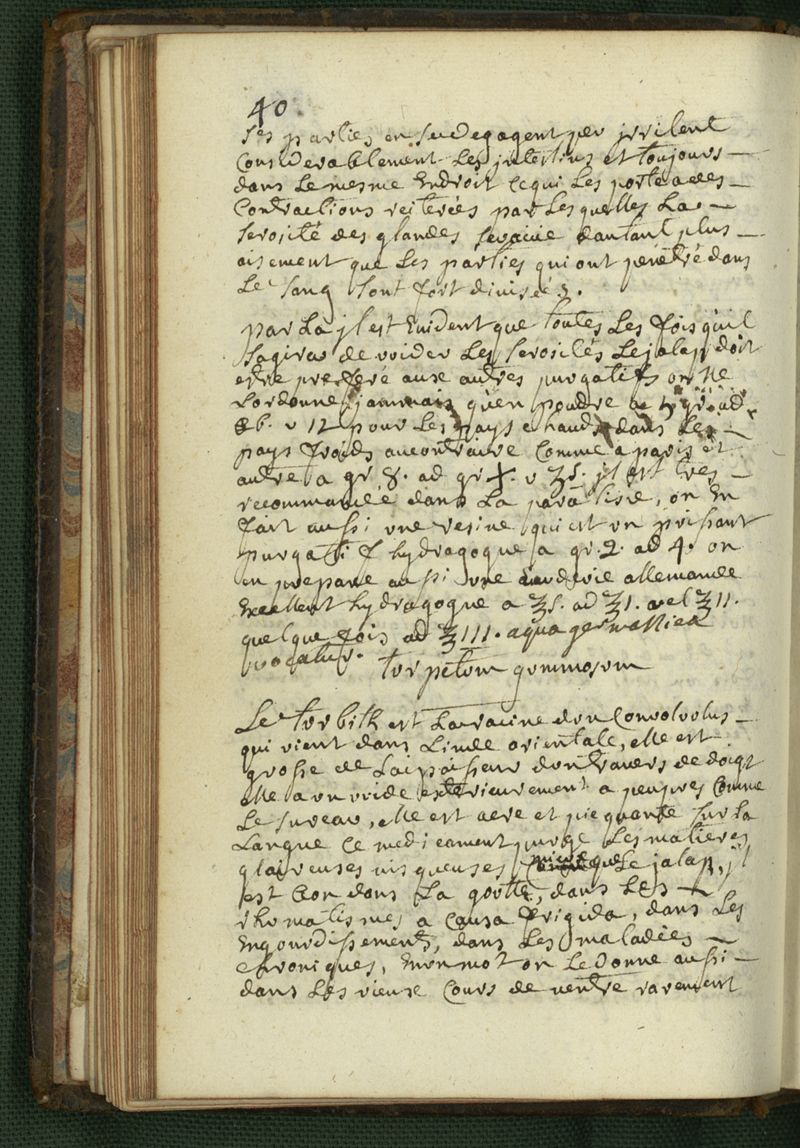 40.
ses parties en se degagent peu jrritent
Considerablement Les jntestins et toujours
dans Le mesme Endroit Ce qui Les porte a des
Contractions reiterées par Les quelles La
serosité des glandes dautant plus
aisement que Les parties qui ont penetré dans
Le sang sont fort divisées.
par La jl est Evident que toutes Les fois quil
sagira de vuider Les serosités Le jalap doit
estre preferé aux autres purgatifs on Ne
Lordonne jammais quen poudre a gr. ad
v 12 pour Les pays chauds dans Les
pays froids aucontraire Comme a paris et
autre a gr 8. ad gr X. v ʒs. jl est tres
recommandé dans La paralisie, on En
fait aussi une resine qui est un puissant
purgatif hydragogue a gr. 2. ad 4. on
en prepare aussi une eau de vie allemande
Excellent hydragogue a ℥s. ad ℥1. vel ℥11.
quelque fois ad ℥111. aqua germanica
vocatur.
turpetum gummosum
Le turbith est La racine dun Convolvolus
qui vient dans Linde orientale, elle est
grosse de Laipaisseur dun travers de doigt
elle a un vuide exterieurement a peupres Comme
Le sureau, elle est acre et piequante sur La
Langue Ce medicament purge Les matieres
glaireuses visqueuses mieux que Le jalap, jl
est bon dans La goutte, dans Les
rhumatismes a Causa frigida, dans Les
Engourdissements, dans Les maladies
chroniques, En un mot on Le donne aussi
dans Les vieux Cours de ventre rarement